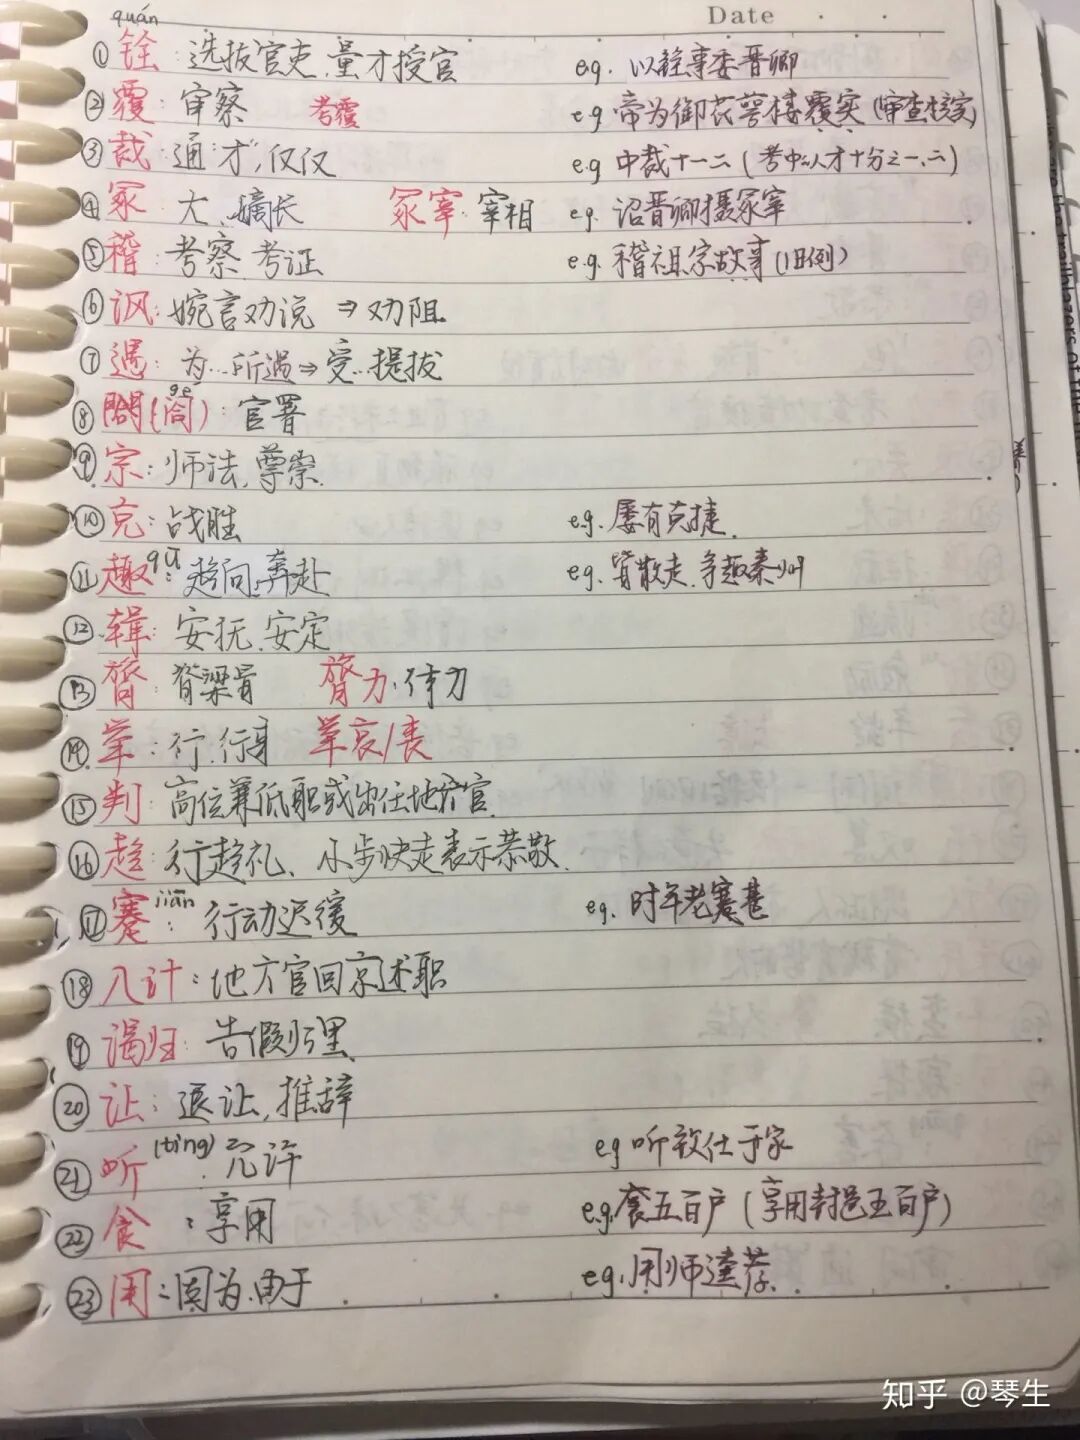 Date
quán
①铨:选拔官吏、量才授官 e.g. 以铨事委晋卿
②覆:审察 考覆 e.g 帝为御花萼楼覆实(审查核实)
③裁:通"才",仅仅 e.g 中裁十一二(考中人才十分之一、二)
④冢 大、嫡长 冢宰:宰相 e.g. 诏晋卿摄冢宰
⑤稽:考察、考证 e.g. 稽祖宗故事(旧例)
⑥讽:婉言劝说 ⇒劝阻
⑦遇:为…所遇⇒受…提拔
gé
⑧閤(阁):官署
⑨宗:师法,尊崇.
⑩克:战胜 e.g. 屡有克捷.
qū
⑪趣:趋向、奔赴 e.g. 皆散走,争趣秦州
⑫辑:安抚、安定
⑬膂:脊梁骨 膂力:体力
⑭举:行、行事 举哀/丧
⑮判:高位兼低职或出任地方官.
⑯趋:行趋礼、小步快走表示恭敬.
jiǎn
⑰蹇:行动迟缓 e.g. 时年老蹇甚
⑱入计:地方官回京述职
⑲谒归:告假归里
⑳让:退让,推辞
㉑听(tīng):允许 e.g 听致仕于家
㉒食:享用 e.g.食五百户(享用封邑五百户)
㉓用:因为、由于 e.g.用师达荐.
知乎 @琴生